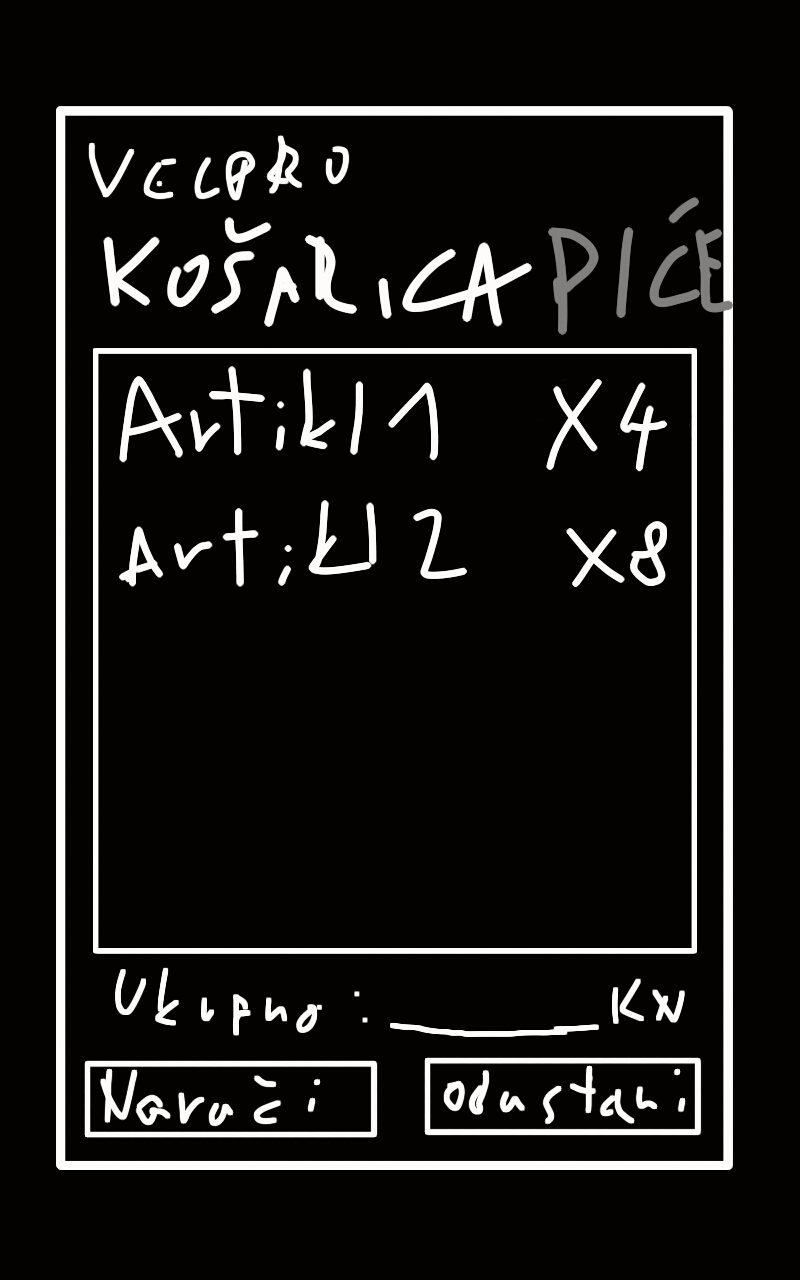 VELPRO
KOŠARICA PIĆE
Artikl 1 X4
Artikl 2 X8
Ukupno: ______ KN
Naruči odustani